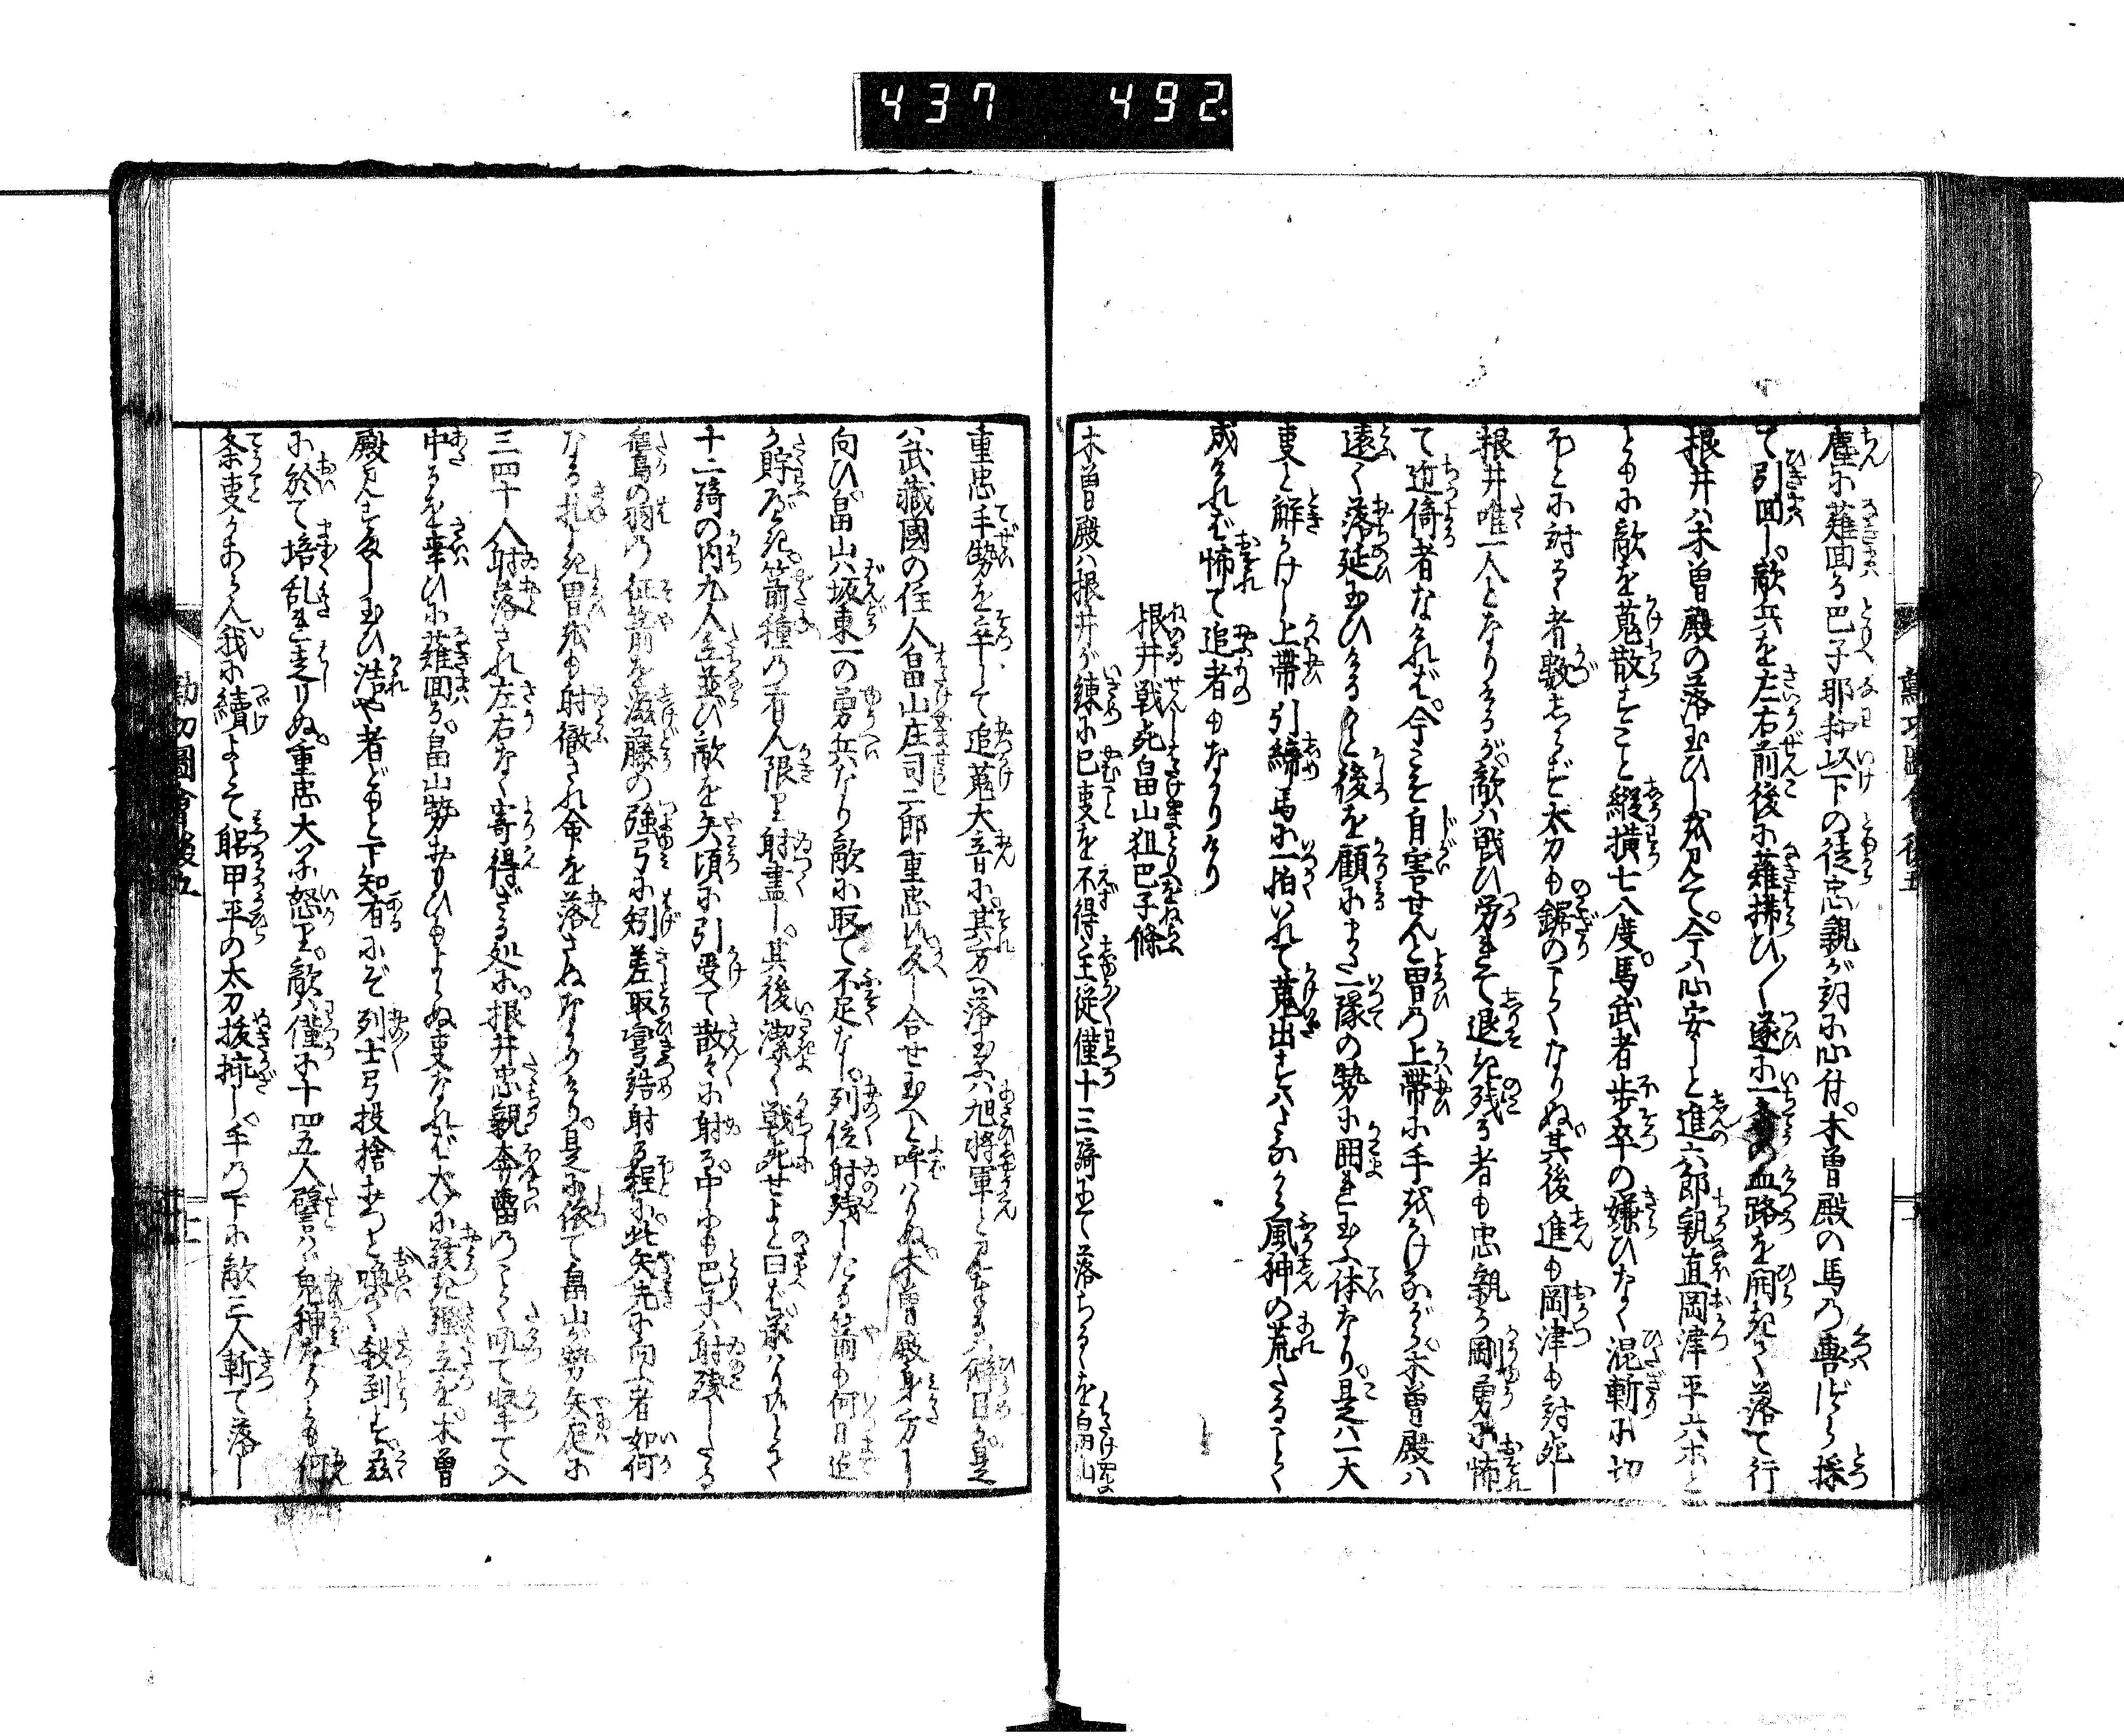 437 492
塵に薙回る巴子那和以下の徒忠親が詞に心付。木曽殿の馬の轡づら採
て引回し。敵兵を左右前後に薙拂ひ〳〵遂に一の血路を開きて落て行
根井ハ木曽殿の落玉ひしを見て。今ハ心安しと進六郎親直岡津平六ホと
ともに敵を蒐散すこと縦横七八度。馬武者歩卒の嫌ひなく混斬に切
ほとに討るゝ者数しらず太刀も鋸のごとくなりぬ。其後進も岡津も討死し
根井唯一人となりけるが。敵ハ戦ひ労れて退き残る者も忠親が剛勇に怖
て近倚者なけれバ。今こそ自害せんと冑の上帯に手をかけながら。木曽殿ハ
遠く落延玉ひけるかと後を顧にまた一隊の勢に囲れ玉ふ体なり。是ハ一大
事と解かけし上帯引締馬に一拍いれて蒐出せバさながら風神の荒たるごとく
成けれバ怖て追者もなかりけり
根井戦死畠山狙巴子條
木曽殿ハ根井が練に已事を不得主従僅十三騎にて落ちるゝを畠山
重忠手勢を卒して追蒐大音に。其方へ落玉ふハ旭将軍と見たるハ僻目か。是
ハ武藏國の住人畠山庄司二郎重忠也。返し合せ玉へと呼ハりぬ。木曽殿身方に
向ひ畠山ハ坂東一の勇兵なり敵に取て不足なし。列位射残したる箭も何日迄
か貯べき。箭種の有ん限り射盡し。其後潔く戦死せよと曰バ承ハりぬとて
十二騎の内九人立並び敵を矢頃に引受て散々に射る。中にも巴子ハ射残したる
鷲の羽の征箭を滋藤の強弓に矧差取引詰射る程に。此矢先に向ふ者如何
なる札よき冑をも射徹され命を落さぬなかりけり。是に依て畠山が勢矢庭に
三四十人射落され左右なく寄得ざる処に。根井忠親奮雷のごとく吼て堅て入
中るを幸ひに薙回る。畠山勢おもひもよらぬ事なれバ大に騒ぎ殪立を。木曽
殿見そなハし玉ひ浩や者どもと下知有にぞ列士弓投捨おつと喚て殺到す。茲
に於て壻乱れ走りぬ。重忠大に怒り。敵ハ僅に十四五人譬ハ鬼神なりとも何
条事かあらん我に續よとて躬甲平の太刀抜擁し。手の下に敵三人斬て落し